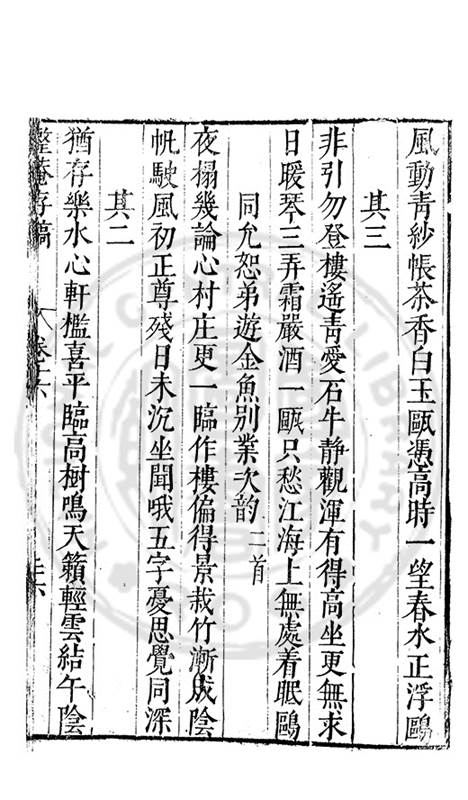 風動青紗帳茶香白玉甌憑高時一望春水正浮鷗
其三
非引勿登樓遙青愛石牛静觀渾有得高坐更無求
日暖琴三弄霜嚴酒一甌只愁江海上無處着眠鷗
同允恕弟遊金魚別業次韵二首
夜搨幾論心村庄更一臨作樓偏得景栽竹漸成陰
帆駛風初正尊殘日未沉坐聞哦五字憂思覺同深
其二
猶存樂水心軒檻喜平臨高樹鳴天籟輕雲結午陰
整菴存稿 卷十六